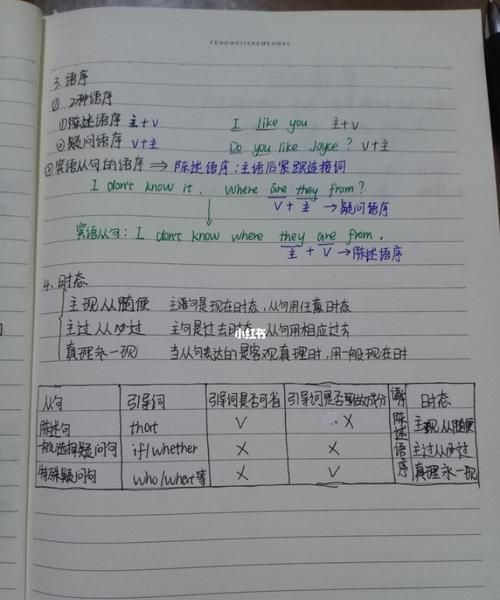 FENGWEITAKEMEAWAY
3. 语序
① 2种语序
①陈述语序 主+V I like you 主+V
②疑问语序 V+主 Do you like Joyce? V+主
②宾语从句的语序 ⇒ 陈述语序:主语后紧跟连接词
I don't know it. Where are they from?
V + 主 → 疑问语序
宾语从句: I don't know where they are from.
主 + V → 陈述语序
4. 时态
主现从随便 主语句是现在时态,从句用任意时态
主过从必过 主句是过去时态,从句用相应过去
小红书
真理永一现 当从句表达的是客观真理时,用一般现在时
从句 引导词 引导词是否可省 引导词是否可做成分 语序 时态
陈述句 that V X 陈述语序 主现从随便
一般选择疑问句 if/whether X X 主过从必过
特殊疑问句 who/what等 X V 真理永一现